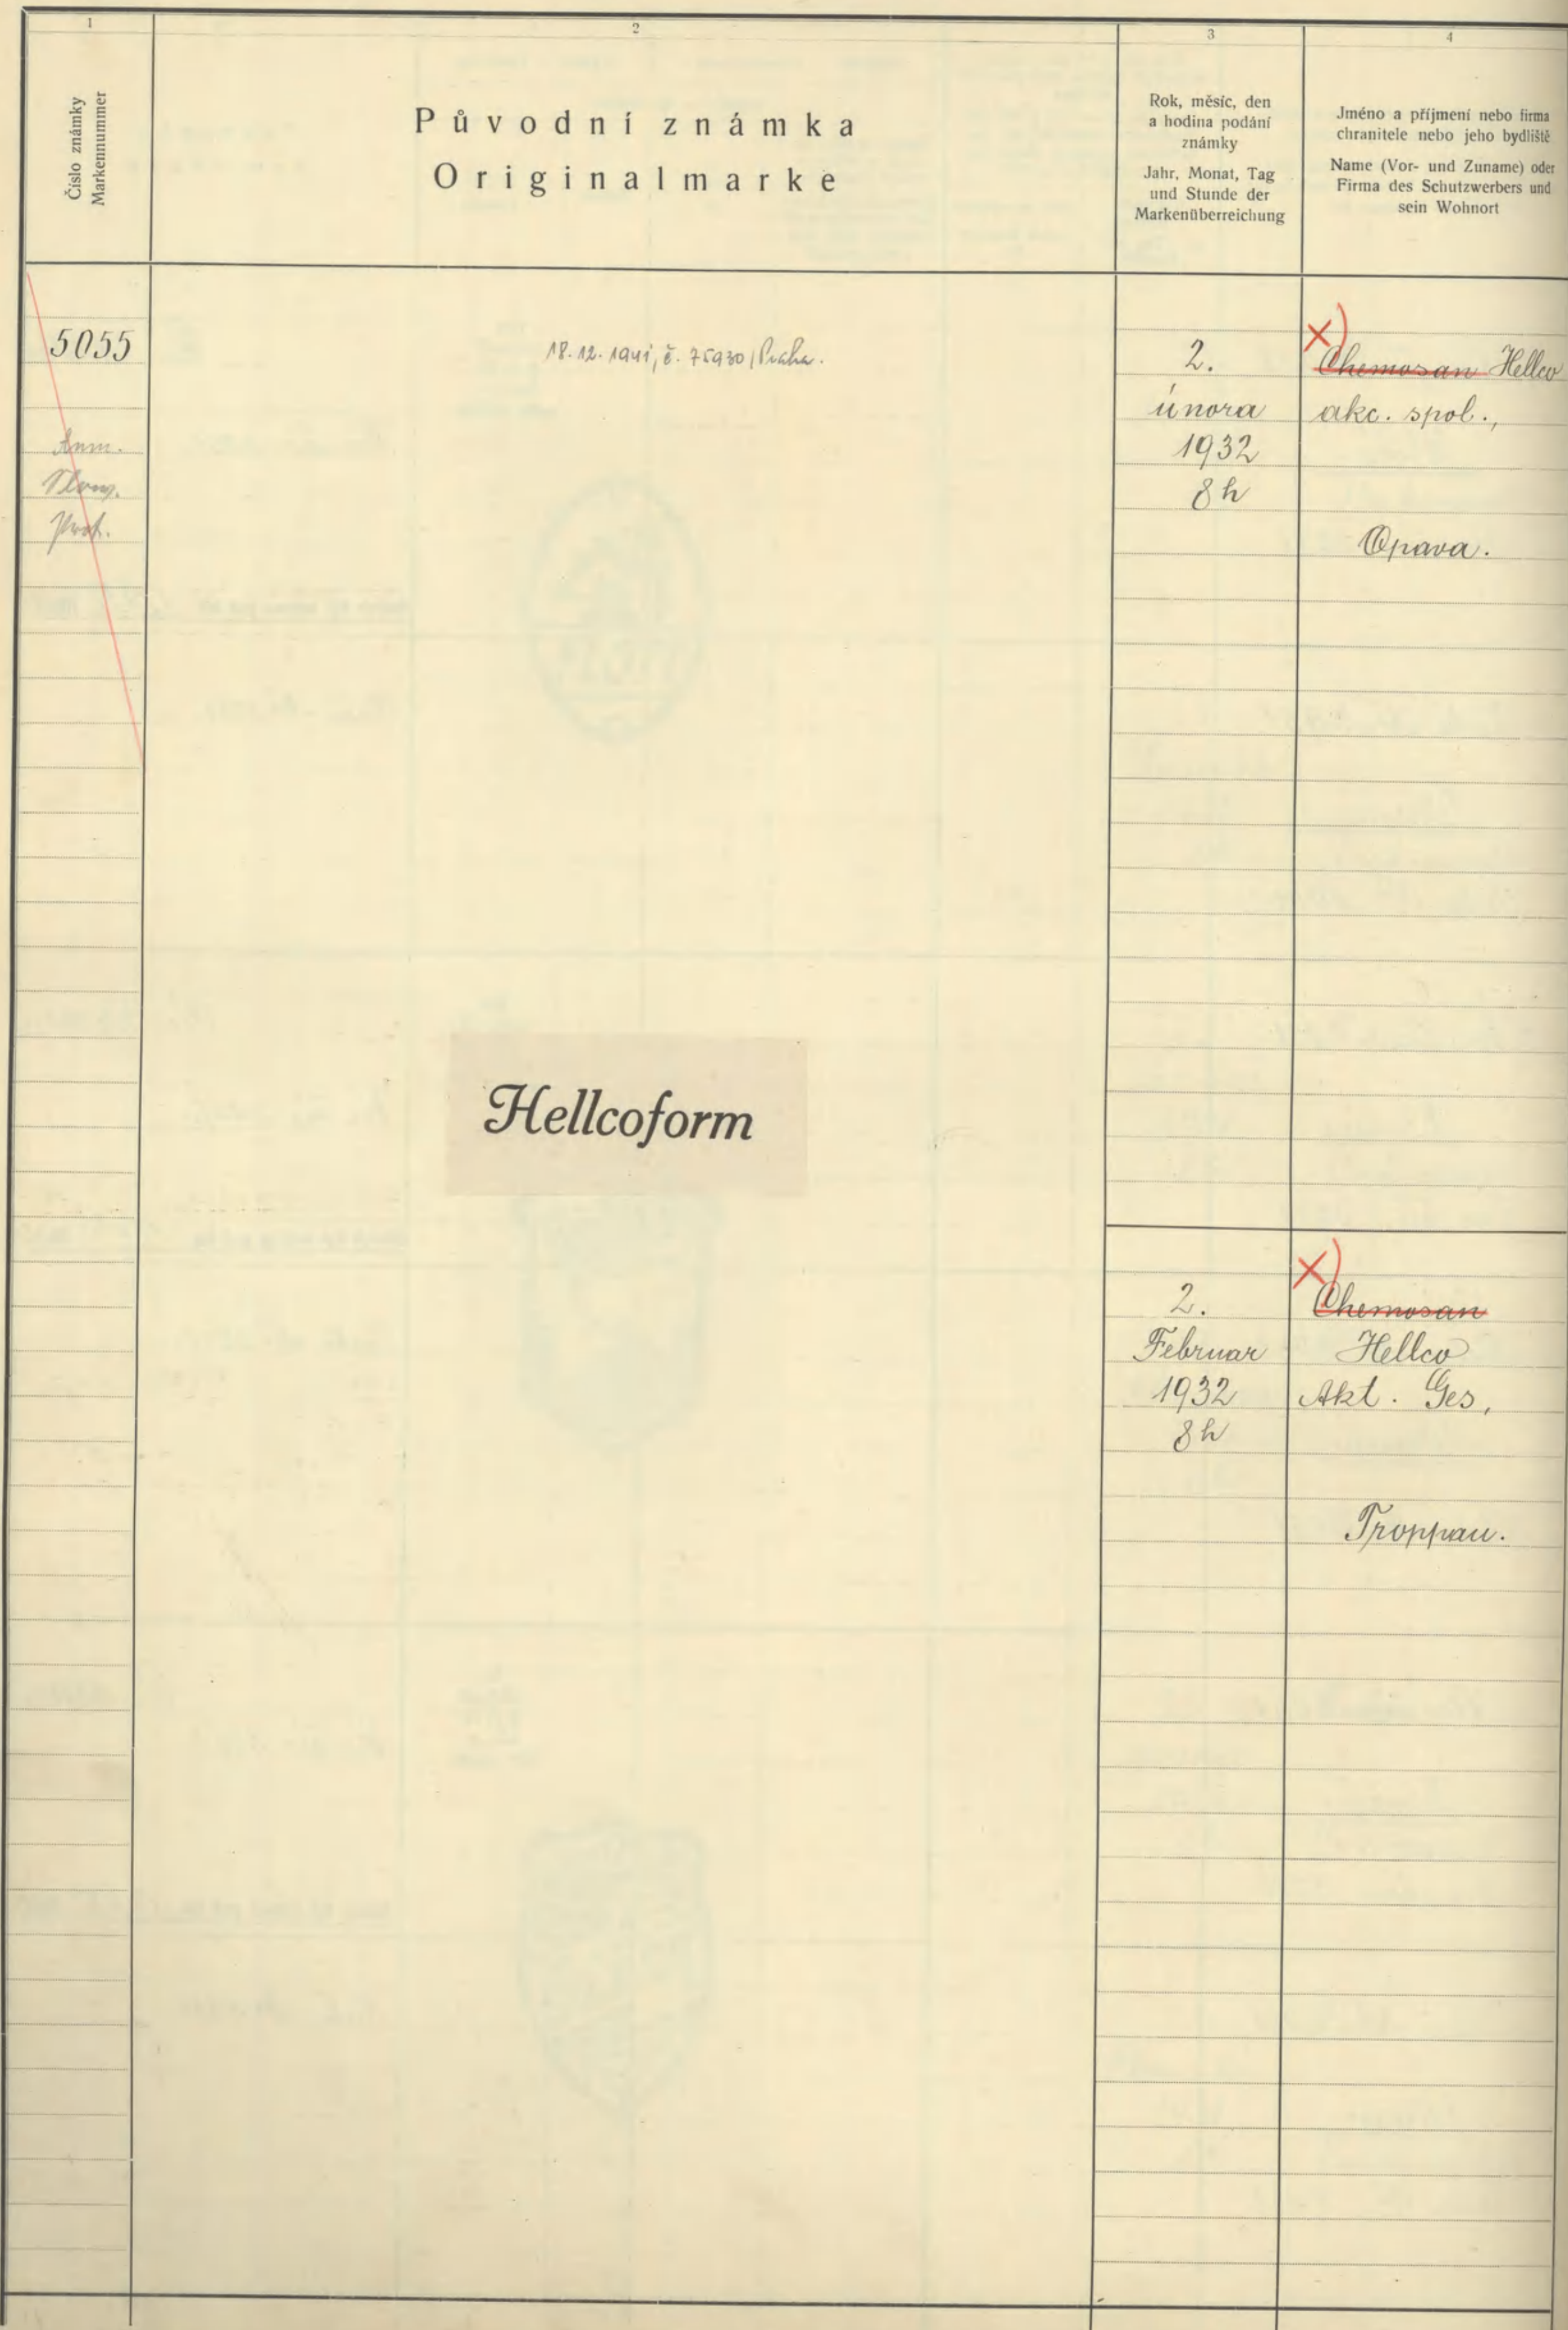 1
2
3
4
Číslo známky
Markennummer
Původní známka
Originalmarke
Rok, měsíc, den
a hodina podání
známky
Jahr, Monat, Tag
und Stunde der
Markenüberreichung
Jméno a příjmení nebo firma
chranitele nebo jeho bydliště
Name (Vor- und Zuname) oder
Firma des Schutzwerbers und
sein Wohnort
5055
Anm.
Prot.
18.12.1941, č. 75930/Praha.
2.
února
1932
8 h
×)
Chemosan Hellco
akc. spol.,
Opava.
Hellcoform
2.
Februar
1932
8 h
×)
Chemosan
Hellco
Akt. Ges,
Troppau.